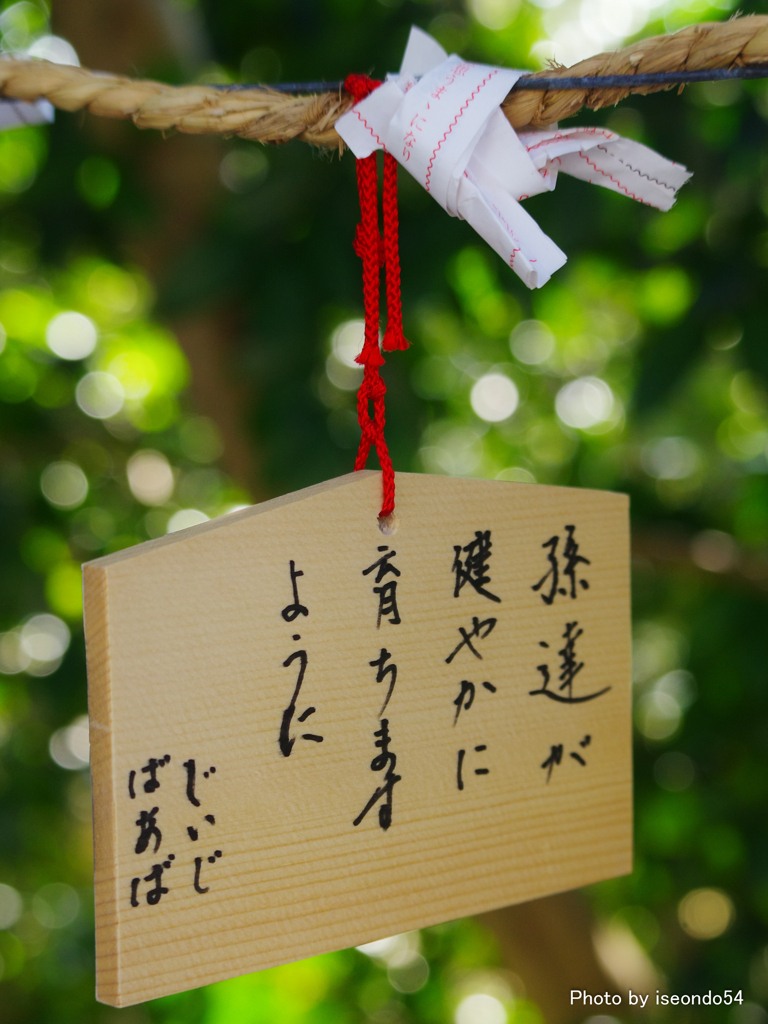 孫達が
健やかに
育ちます
ように
じいじ
ばあば
Photo by iseondo54